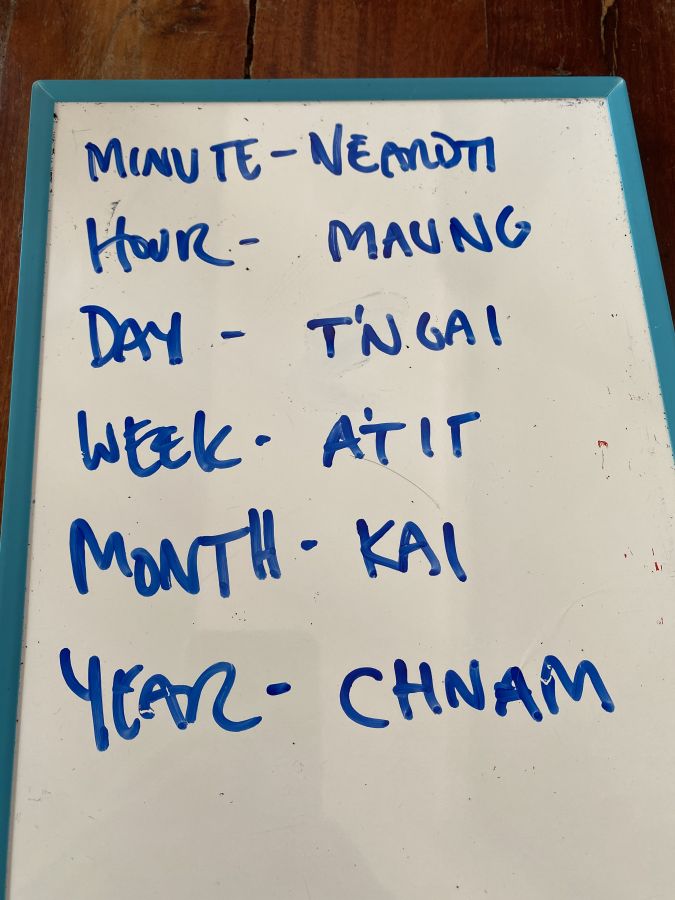 MINUTE - NEAROTI
HOUR - MAUNG
DAY - T'NGAI
WEEK - A'TIT
MONTH - KAI
YEAR - CHNAM